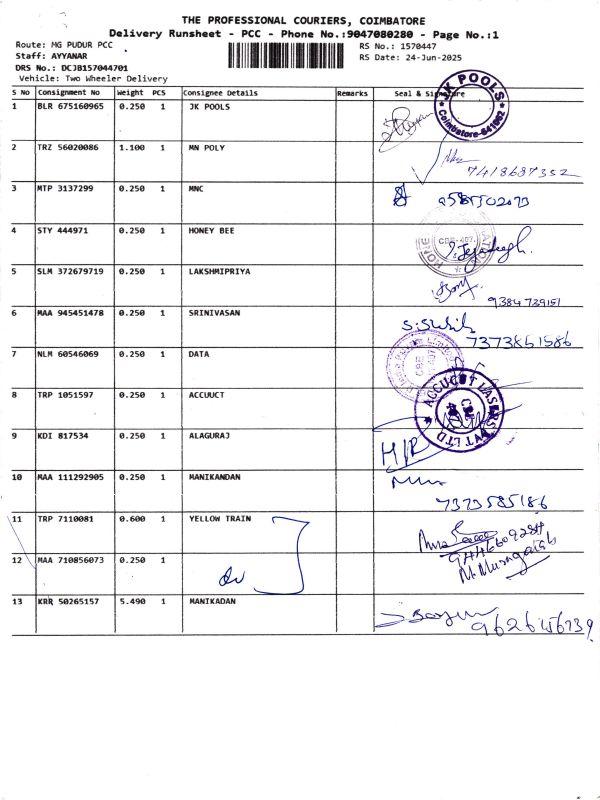 THE PROFESSIONAL COURIERS, COIMBATORE
Delivery Runsheet - PCC - Phone No.:9047080280 - Page No.:1
Route: MG PUDUR PCC RS No.: 1570447
Staff: AYYANAR RS Date: 24-Jun-2025
DRS No.: DCJB157044701
Vehicle: Two Wheeler Delivery
S No Consignment No Weight PCS Consignee Details Remarks Seal & Signature
1 BLR 675160965 0.250 1 JK POOLS
JK POOLS
Coimbatore-641062
2 TRZ 56020086 1.100 1 MN POLY
7418687352
3 MTP 3137299 0.250 1 MNC
4 STY 444971 0.250 1 HONEY BEE
5 SLM 372679719 0.250 1 LAKSHMIPRIYA
9384739151
6 MAA 945451478 0.250 1 SRINIVASAN
7373861586
7 NLM 60546069 0.250 1 DATA
8 TRP 1051597 0.250 1 ACCUUCT
ACCUCUT LASERS PVT LTD
9 KDI 817534 0.250 1 ALAGURAJ
H/R
10 MAA 111292905 0.250 1 MANIKANDAN
7373585186
11 TRP 7110081 0.600 1 YELLOW TRAIN
12 MAA 710856073 0.250 1
13 KRR 50265157 5.490 1 MANIKADAN
9626456739